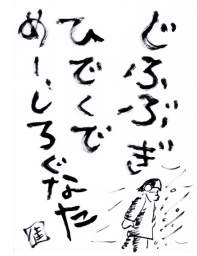 どふぶぎ
ひでくで
めーしろぐなた